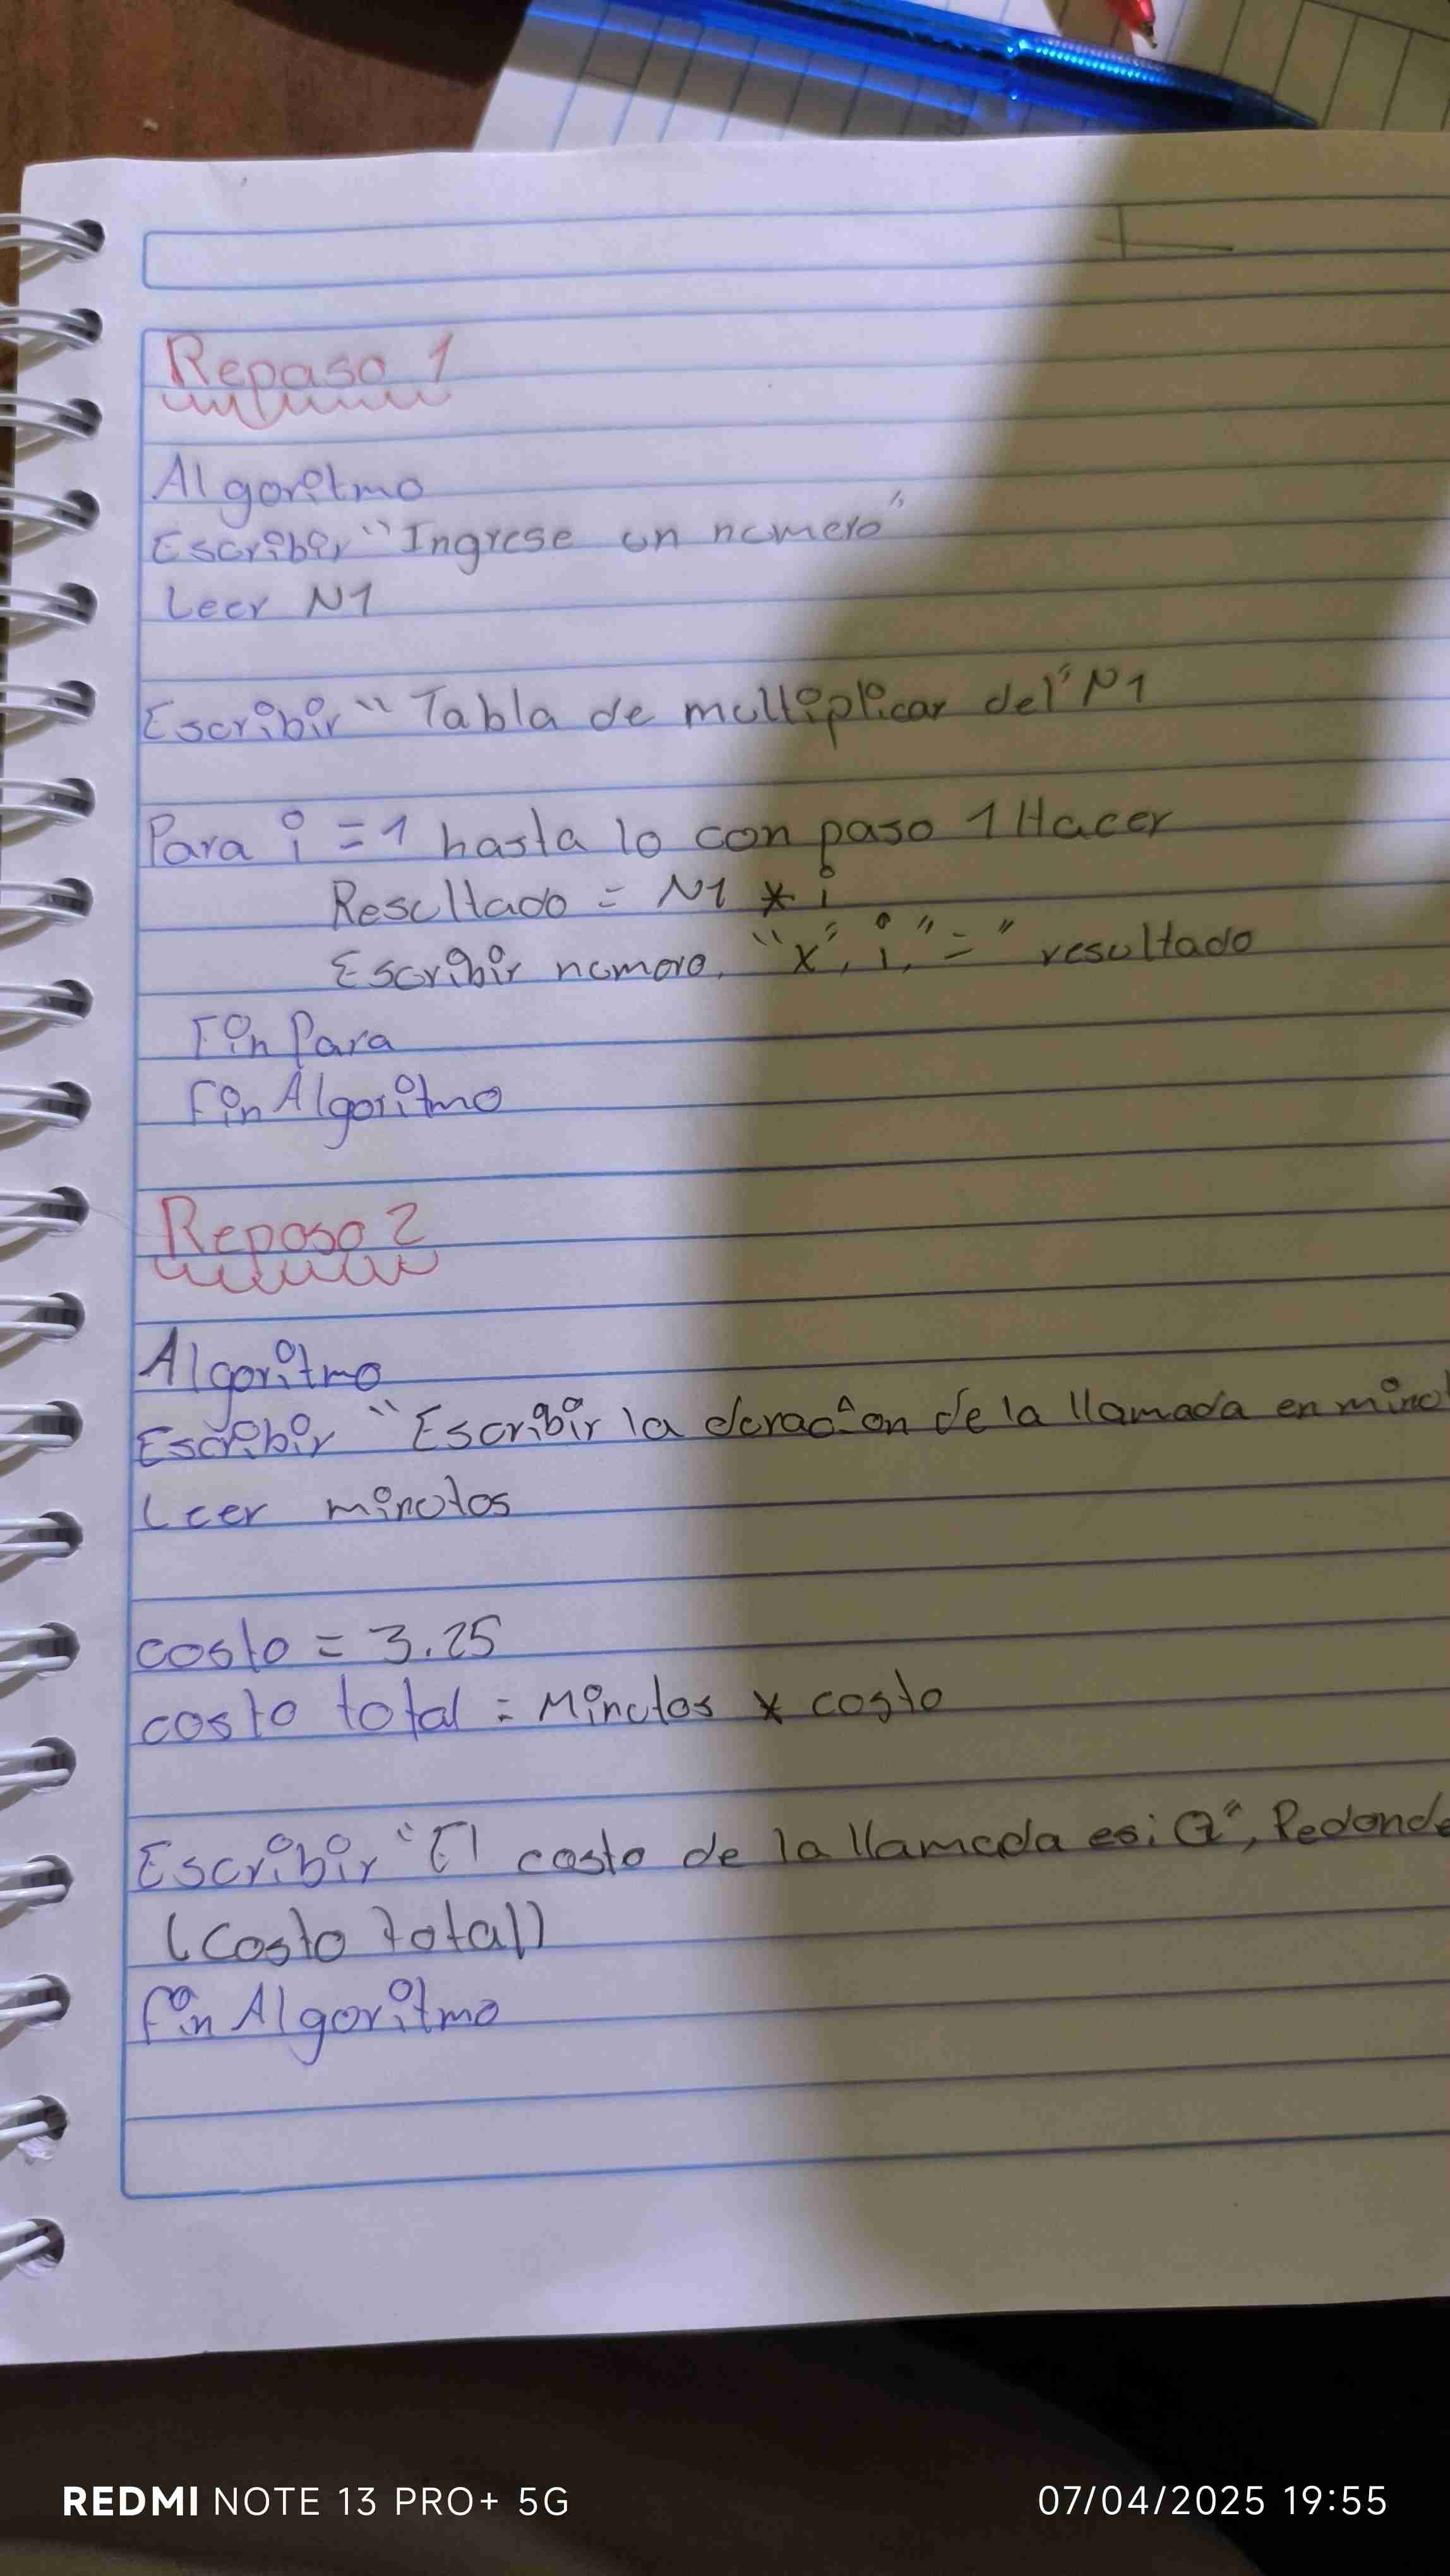 Repaso 1
Algoritmo
Escribir "Ingrese un numero"
Leer N1
Escribir "Tabla de multiplicar del" N1
Para i = 1 hasta 10 con paso 1 Hacer
Resultado = N1 * i
Escribir numero, "x", i, "=" resultado
Fin Para
Fin Algoritmo
Repaso 2
Algoritmo
Escribir "Escribir la duracion de la llamada en
Leer minutos
costo = 3.25
costo total = Minutos * costo
Escribir "El costo de la llamada es: Q",
(Costo total)
fin Algoritmo
REDMI NOTE 13 PRO+ 5G 07/04/2025 19:55